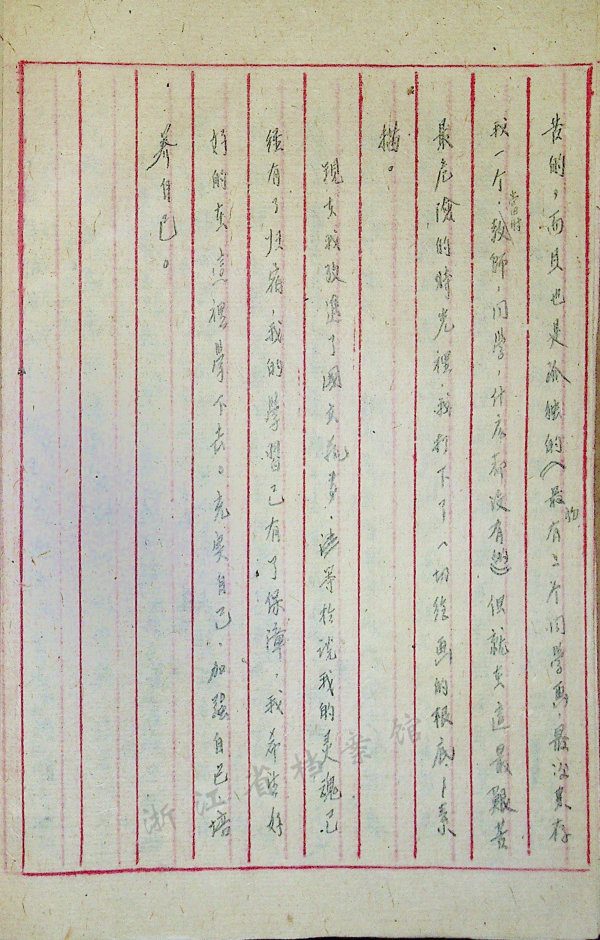 苦的，而且也是孤独的（最初有二个同学画，最后只存
我一个，当时教师，同学，什么都没有的）但就在这最艰苦
最危险的时光裡，我打下了一切绘画的根底—素
描。
现在我改进了國立艺专，這等於说我的灵魂已
经有了归宿，我的學習已有了保障，我希望好
好的在這裡學下去。充实自己，加强自己培
养自己。
浙江省档案馆